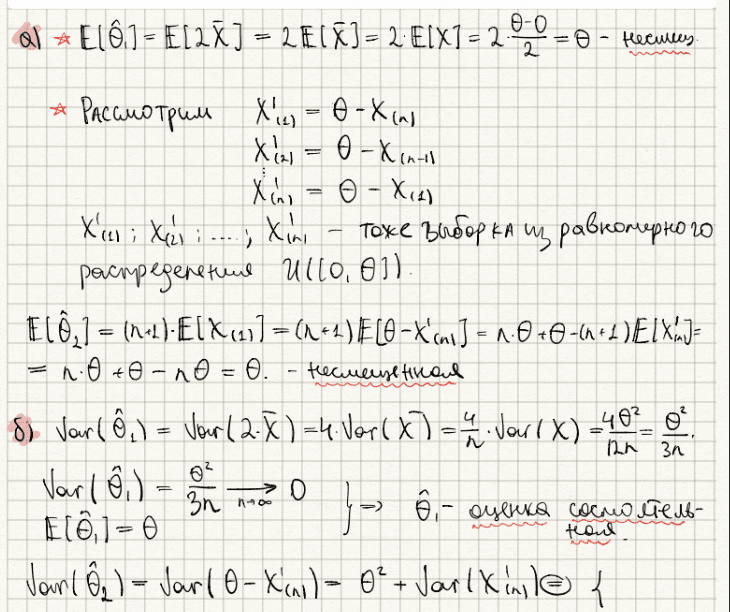 а) ☆ E[θ̂₁] = E[2X̄] = 2E[X̄] = 2·E[X] = 2·(θ-0)/2 = θ – несмещ.
☆ Рассмотрим X'₍₁₎ = θ - X₍ₙ₎
X'₍₂₎ = θ - X₍ₙ₋₁₎
⋮
X'₍ₙ₎ = θ - X₍₁₎
X'₍₁₎ ; X'₍₂₎ ; ....; X'₍ₙ₎ – тоже выборка из равномерного
распределения U([0, θ]).
E[θ̂₂] = (n+1)·E[X₍₁₎] = (n+1)E[θ-X'₍ₙ₎] = n·θ+θ-(n+1)E[X'₍ₙ₎] =
= nθ+θ-nθ = θ. – несмещенная
б) Var(θ̂₁) = Var(2·X̄) = 4·Var(X̄) = 4/n·Var(X) = 4θ²/12n = θ²/3n.
Var(θ̂₁) = θ²/3n →(n→∞) 0
E[θ̂₁] = θ } => θ̂₁ – оценка состоятель-
ная.
Var(θ̂₂) = Var(θ - X'₍ₙ₎) = θ² + Var(X'₍ₙ₎) ⊜ {